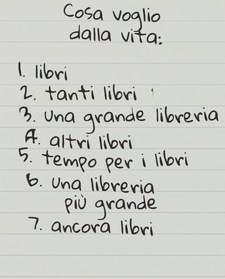 Cosa voglio
dalla vita:
1. libri
2. tanti libri
3. una grande libreria
4. altri libri
5. tempo per i libri
6. una libreria
più grande
7. ancora libri